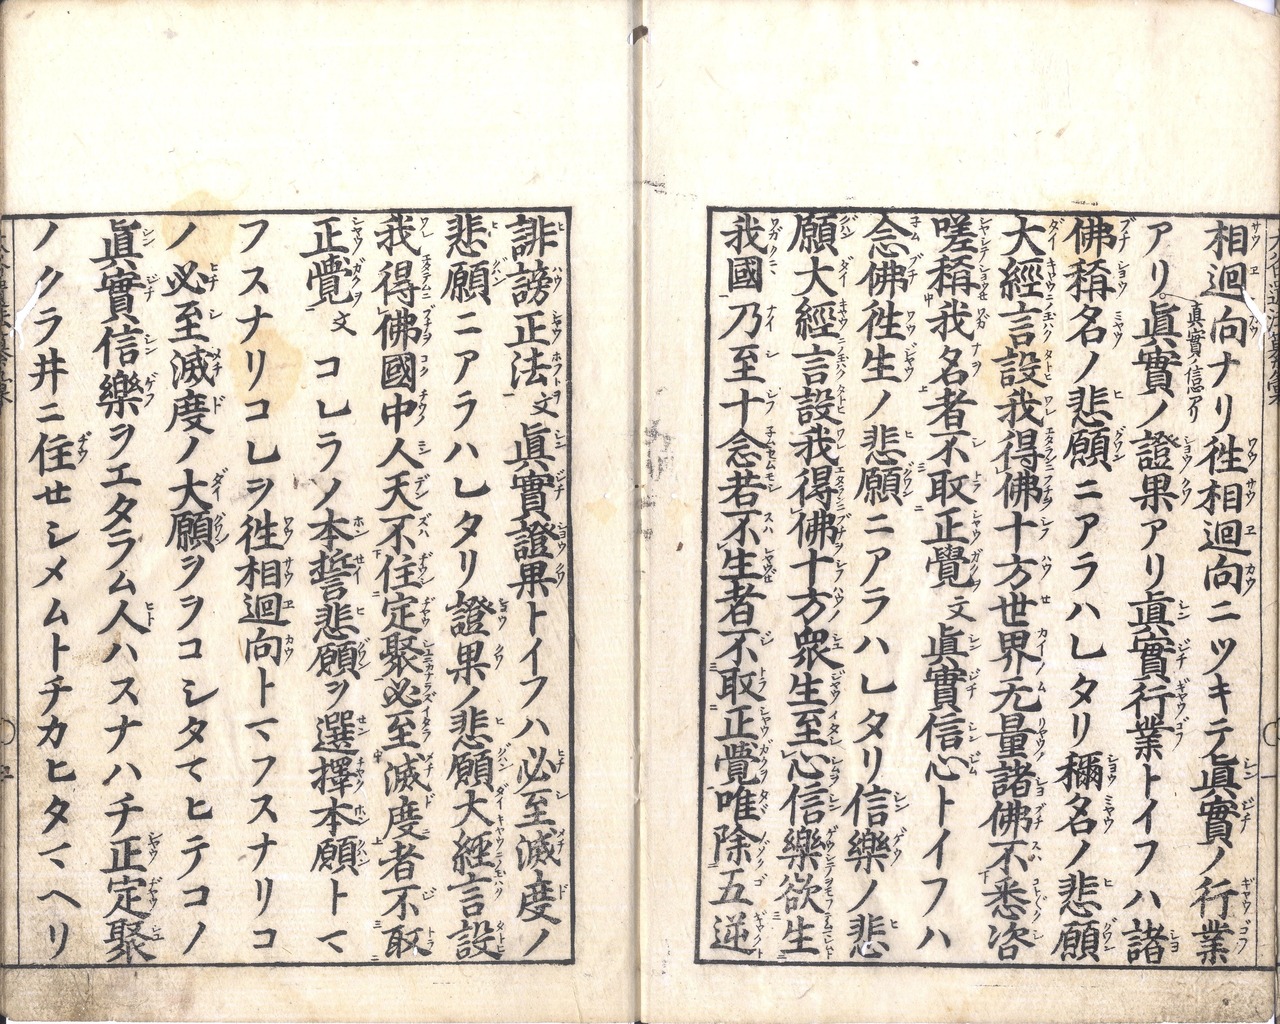 相迴向ナリ徃相迴向ニツキテ眞實ノ行業
アリ眞實ノ證果アリ眞實行業トイフハ諸
眞実ノ信心アリ
佛稱名ノ悲願ニアラハレタリ稱名ノ悲願
大經言設我得佛十方世界无量諸佛不悉咨
嗟稱我名者不取正覺文眞實信心トイフハ
念佛徃生ノ悲願ニアラハレタリ信樂ノ悲
願大經言設我得佛十方衆生至心信樂欲生
我國乃至十念若不生者不取正覺唯除五逆
誹謗正法文眞實證果トイフハ必至滅度ノ
悲願ニアラハレタリ證果ノ悲願大經言設
我得佛國中人天不住定聚必至滅度者不取
正覺文コレラノ本誓悲願ヲ選擇本願トマ
フスナリコレヲ徃相迴向トマフスナリコ
ノ必至滅度ノ大願ヲヲコシタマヒテコノ
眞實信樂ヲエタラム人ハスナハチ正定聚
ノクラ井ニ住セシメムトチカヒタマヘリ